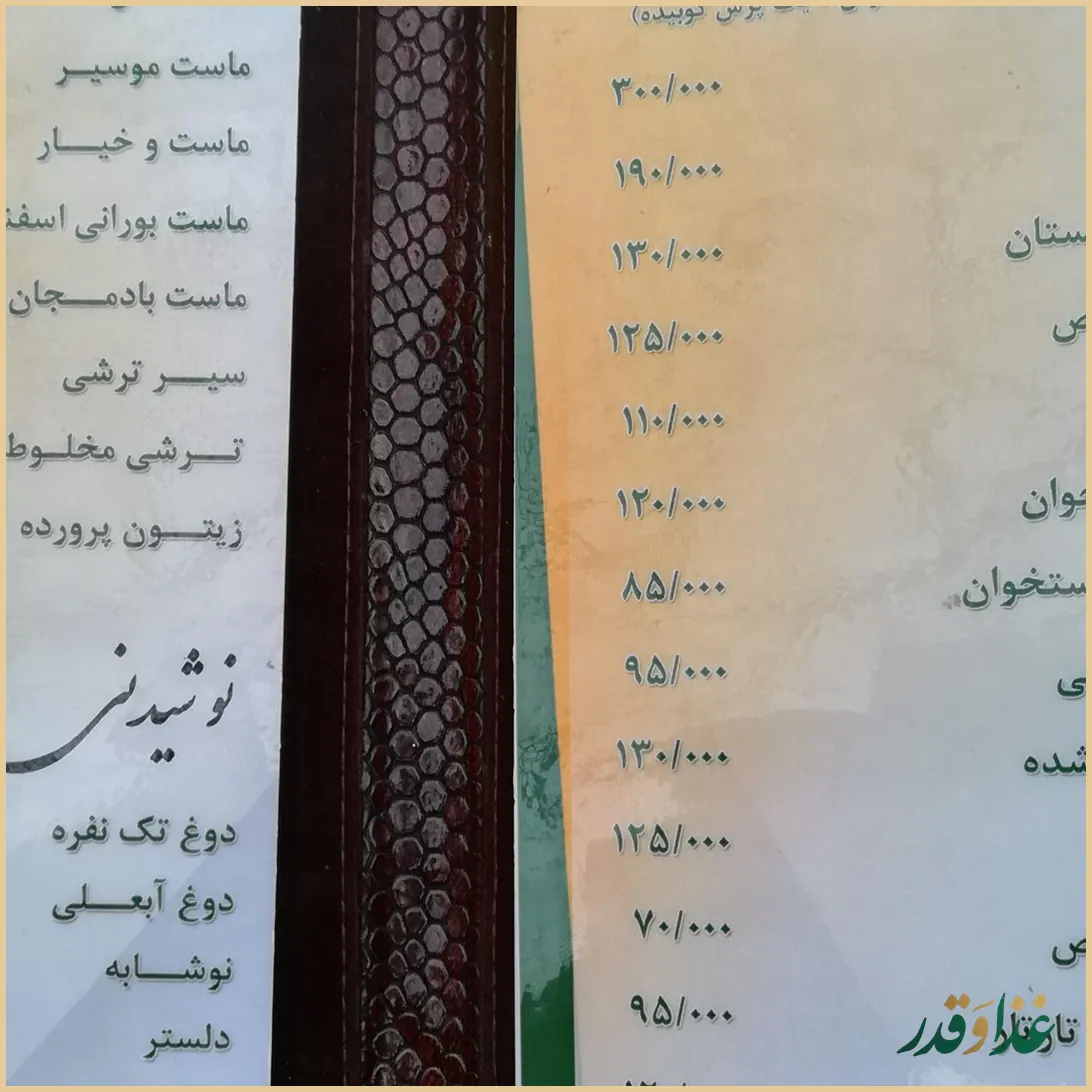 پرس کوبیده)
۳۰۰/۰۰۰
۱۹۰/۰۰۰
۱۳۰/۰۰۰
۱۲۵/۰۰۰
۱۱۰/۰۰۰
۱۲۰/۰۰۰
۸۵/۰۰۰
۹۵/۰۰۰
شده ۱۳۰/۰۰۰
۱۲۵/۰۰۰
۷۰/۰۰۰
۹۵/۰۰۰
ماست موسیر
ماست و خیار
ماست بورانی اسفنـ
ماست بادمجان
سیر ترشی
ترشی مخلوط
زیتون پرورده
نوشیدنی
دوغ تک نفره
دوغ آبعلی
نوشابه
دلستر
غذا و قدر